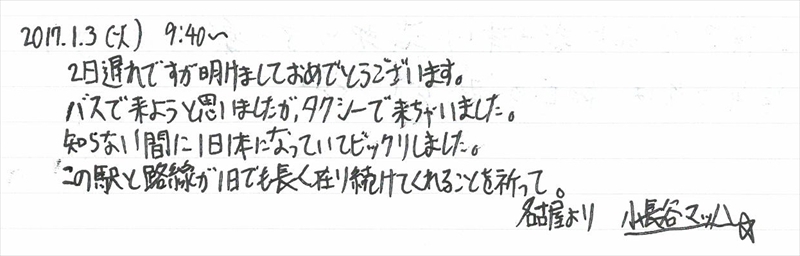 2017.1.3(火) 9:40〜
2日遅れですが明けましておめでとうございます。
バスで来ようと思いましたが、タクシーで来ちゃいました。
知らない間に1日1本になっていてビックリしました。
この駅と路線が1日でも長く在り続けてくれることを祈って。
名古屋より 小長谷マッハ☆